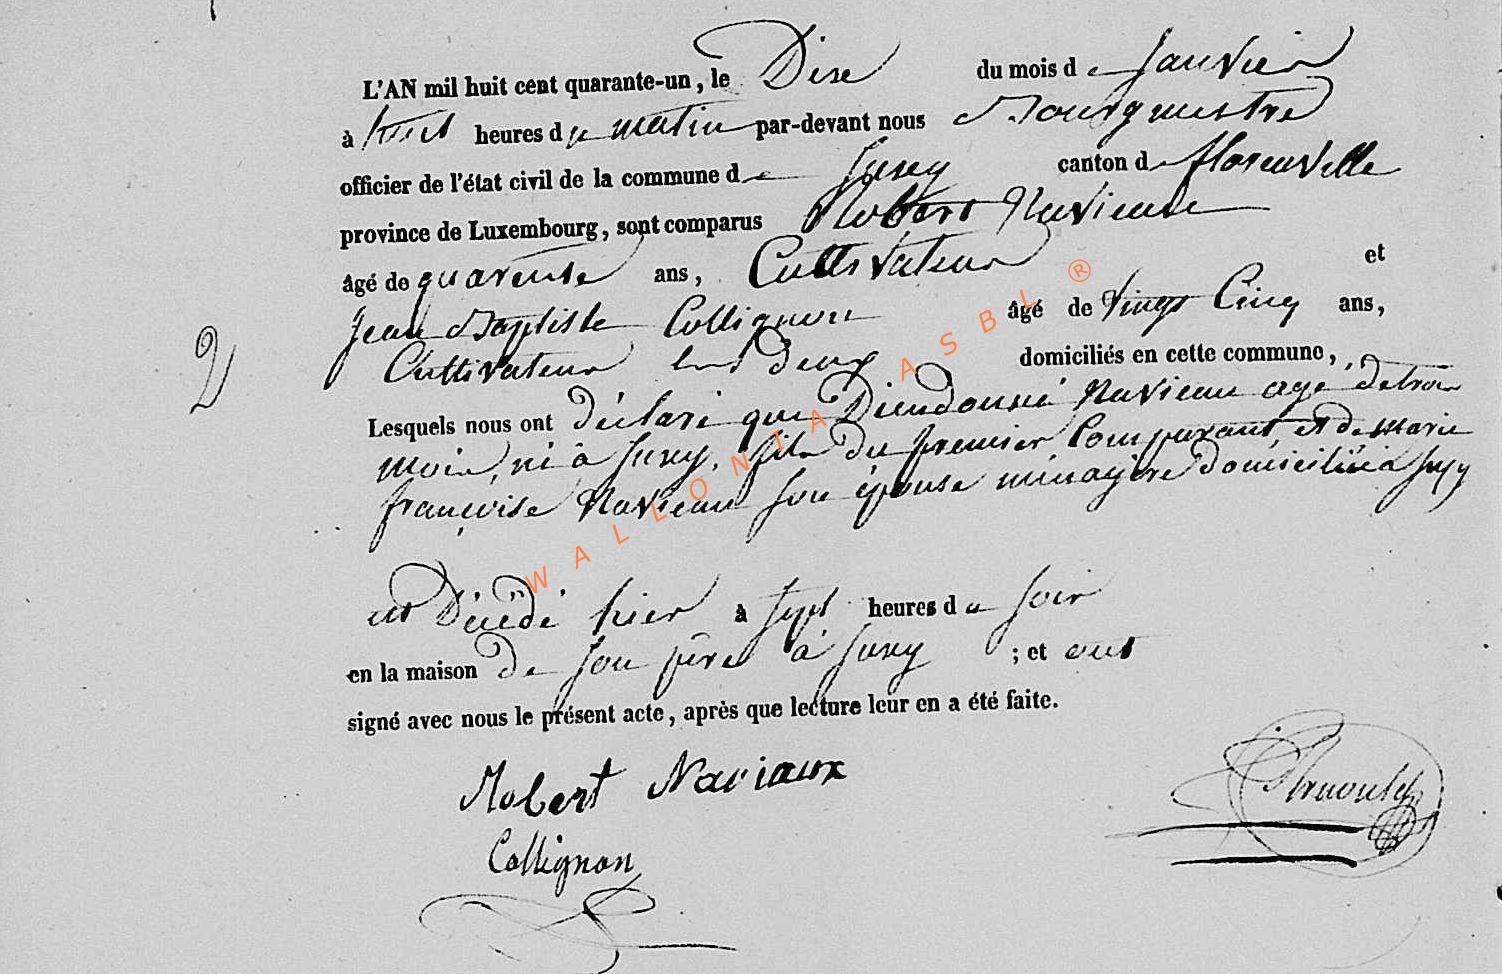 L'AN mil huit cent quarante-un, le Dixe du mois de Janvier
à huit heures du matin par-devant nous Bourgmestre
officier de l'état civil de la commune de Suxy canton de florenville
province de Luxembourg, sont comparus Robert Navieaux
âgé de quarente ans, Cultivateur et
Jean Baptiste Collignon âgé de vingt Cinq ans,
2
Cultivateur tous deux domiciliés en cette commune,
Lesquels nous ont déclaré que Dieudonné Navieau agé de trois
mois, né à Suxy, fils du premier Comparant, et de marie
françoise Navieau son épouse ménagère domiciliée à Suxy
est Décédé hier à sept heures du soir
en la maison de son père à Suxy ; et ont
signé avec nous le présent acte, après que lecture leur en a été faite.
Robert Naviaux
Collignon
WALLONIA ASBL ®